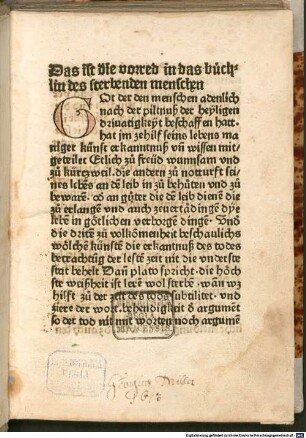 Das ist die vorred in das büch-
lin des sterbenden menschen
GOt der den menschen adenlich
nach der pildnuß der heyligen
drivaltigkeyt beschaffen hatt·
hat jm zehilf seins lebens ma
niger künst erkanntnuß vñ wissen mit-
geteilet Etlich zů freüd wunnsam und
zů kürczweil· die andern zů notturft sei-
nes lebẽs an dẽ leib in zů behůten und zů
beware· oð an gůter die dẽ leib dienẽ die
zů erlangẽ und auch
lebẽ in götlichen verborgẽ dingẽ· Vnd
die dritẽ zů volkomenheit beschaulichs
wölche künstẽ die erkantnuß des todes
betrachtũg der lestẽ zeit nit die vnderste
stat behelt Dañ plato spricht· die höch
ste weißheit ist lere wol sterbẽ· wañ wz
hilft zů der zeit des tods subtilitet· vnd
zierd der wort behendigkeit ð argument
so det tod nit mit worten noch argumẽ